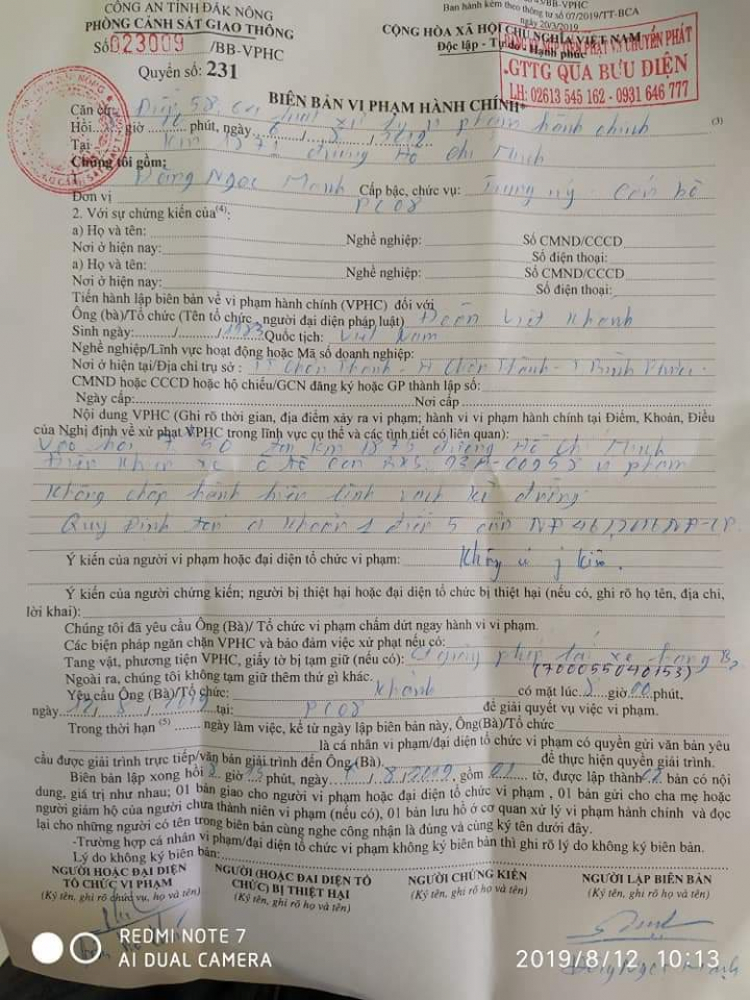 CÔNG AN TỈNH ĐẮK NÔNG
PHÒNG CẢNH SÁT GIAO THÔNG
Số 023009 /BB-VPHC
Quyển số: 231
/BB-VPHC
Ban hành kèm theo thông tư số 07/2019/TT-BCA
ngày 20/3/2019
CỘNG HÒA XÃ HỘI CHỦ NGHĨA VIỆT NAM
Độc lập - Tự do - Hạnh phúc
PHẠT VÀ CHUYỂN PHÁT
GTTG QUA BƯU ĐIỆN
LH: 02613 545 162 - 0931 646 777
BIÊN BẢN VI PHẠM HÀNH CHÍNH
Căn cứ: Điều 58, xử lý vi phạm hành chính (3)
Hồi giờ phút, ngày 6 / 8 / 2019
Tại Km 1875 đường Hồ Chí Minh
Chúng tôi gồm:
1. Đặng Ngọc Mạnh Cấp bậc, chức vụ: Trung úy - Cán bộ
Đơn vị PC08
2. Với sự chứng kiến của(4):
a) Họ và tên: Nghề nghiệp: Số CMND/CCCD
Nơi ở hiện nay: Số điện thoại:
a) Họ và tên: Nghề nghiệp: Số CMND/CCCD
Nơi ở hiện nay: Số điện thoại:
Tiến hành lập biên bản về vi phạm hành chính (VPHC) đối với
Ông (bà)/Tổ chức (Tên tổ chức, người đại diện pháp luật) Đoàn Viết Khánh
Sinh ngày: / / 1983 Quốc tịch: Việt Nam
Nghề nghiệp/Lĩnh vực hoạt động hoặc Mã số doanh nghiệp:
Nơi ở hiện tại/Địa chỉ trụ sở : TT Chơn Thành - H Chơn Thành - T Bình Phước.
CMND hoặc CCCD hoặc hộ chiếu/GCN đăng ký hoặc GP thành lập số:
Ngày cấp: Nơi cấp
Nội dung VPHC (Ghi rõ thời gian, địa điểm xảy ra vi phạm; hành vi vi phạm hành chính tại Điểm, Khoản, Điều
của Nghị định về xử phạt VPHC trong lĩnh vực cụ thể và các tình tiết có liên quan):
Vào hồi 7 50 tại Km 1875 đường Hồ Chí Minh
Điều khiển xe ô tô con BKS 93A-00953 vi phạm
Không chấp hành hiệu lệnh vạch kẻ đường
Quy định tại a khoản 1 điều 5 của NĐ 46/2016/NĐ-CP
Ý kiến của người vi phạm hoặc đại diện tổ chức vi phạm: Không có ý kiến.
Ý kiến của người chứng kiến; người bị thiệt hại hoặc đại diện tổ chức bị thiệt hại (nếu có, ghi rõ họ tên, địa chỉ,
lời khai):
Chúng tôi đã yêu cầu Ông (Bà)/ Tổ chức vi phạm chấm dứt ngay hành vi vi phạm.
Các biện pháp ngăn chặn VPHC và bảo đảm việc xử phạt nếu có:
Tang vật, phương tiện VPHC, giấy tờ bị tạm giữ (nếu có): giấy phép lái xe hạng B2
(700055040153)
Ngoài ra, chúng tôi không tạm giữ thêm thứ gì khác.
Yêu cầu Ông (Bà)/Tổ chức: Khánh có mặt lúc 8 giờ 00 phút,
ngày 12 / 8 / 2019 tại: PC08 để giải quyết vụ việc vi phạm.
Trong thời hạn (5) ngày làm việc, kể từ ngày lập biên bản này, Ông(Bà)/Tổ chức
là cá nhân vi phạm/đại diện tổ chức vi phạm có quyền gửi văn bản yêu
cầu được giải trình trực tiếp/văn bản giải trình đến Ông (Bà). để thực hiện quyền giải trình.
Biên bản lập xong hồi 8 giờ phút, ngày / 8 / 2019, gồm 01 tờ, được lập thành 02 bản có nội
dung, giá trị như nhau; 01 bản giao cho người vi phạm hoặc đại diện tổ chức vi phạm , 01 bản gửi cho cha mẹ hoặc
người giám hộ của người chưa thành niên vi phạm (nếu có), 01 bản lưu hồ ở cơ quan xử lý vi phạm hành chính và đọc
lại cho những người có tên trong biên bản cùng nghe công nhận là đúng và cùng ký tên dưới đây.
-Trường hợp cá nhân vi phạm/đại diện tổ chức vi phạm không ký biên bản thì ghi rõ lý do không ký biên bản.
Lý do không ký biên bản:
NGƯỜI HOẶC ĐẠI DIỆN
TỔ CHỨC VI PHẠM
(Ký tên, ghi rõ chức vụ, họ và tên)
NGƯỜI (HOẶC ĐẠI DIỆN TỔ
CHỨC) BỊ THIỆT HẠI
(Ký tên, ghi rõ họ và tên)
NGƯỜI CHỨNG KIẾN
(Ký tên, ghi rõ họ và tên)
NGƯỜI LẬP BIÊN BẢN
(Ký tên, ghi rõ họ và tên)
Đặng Ngọc Mạnh
REDMI NOTE 7
AI DUAL CAMERA
2019/8/12 10:13